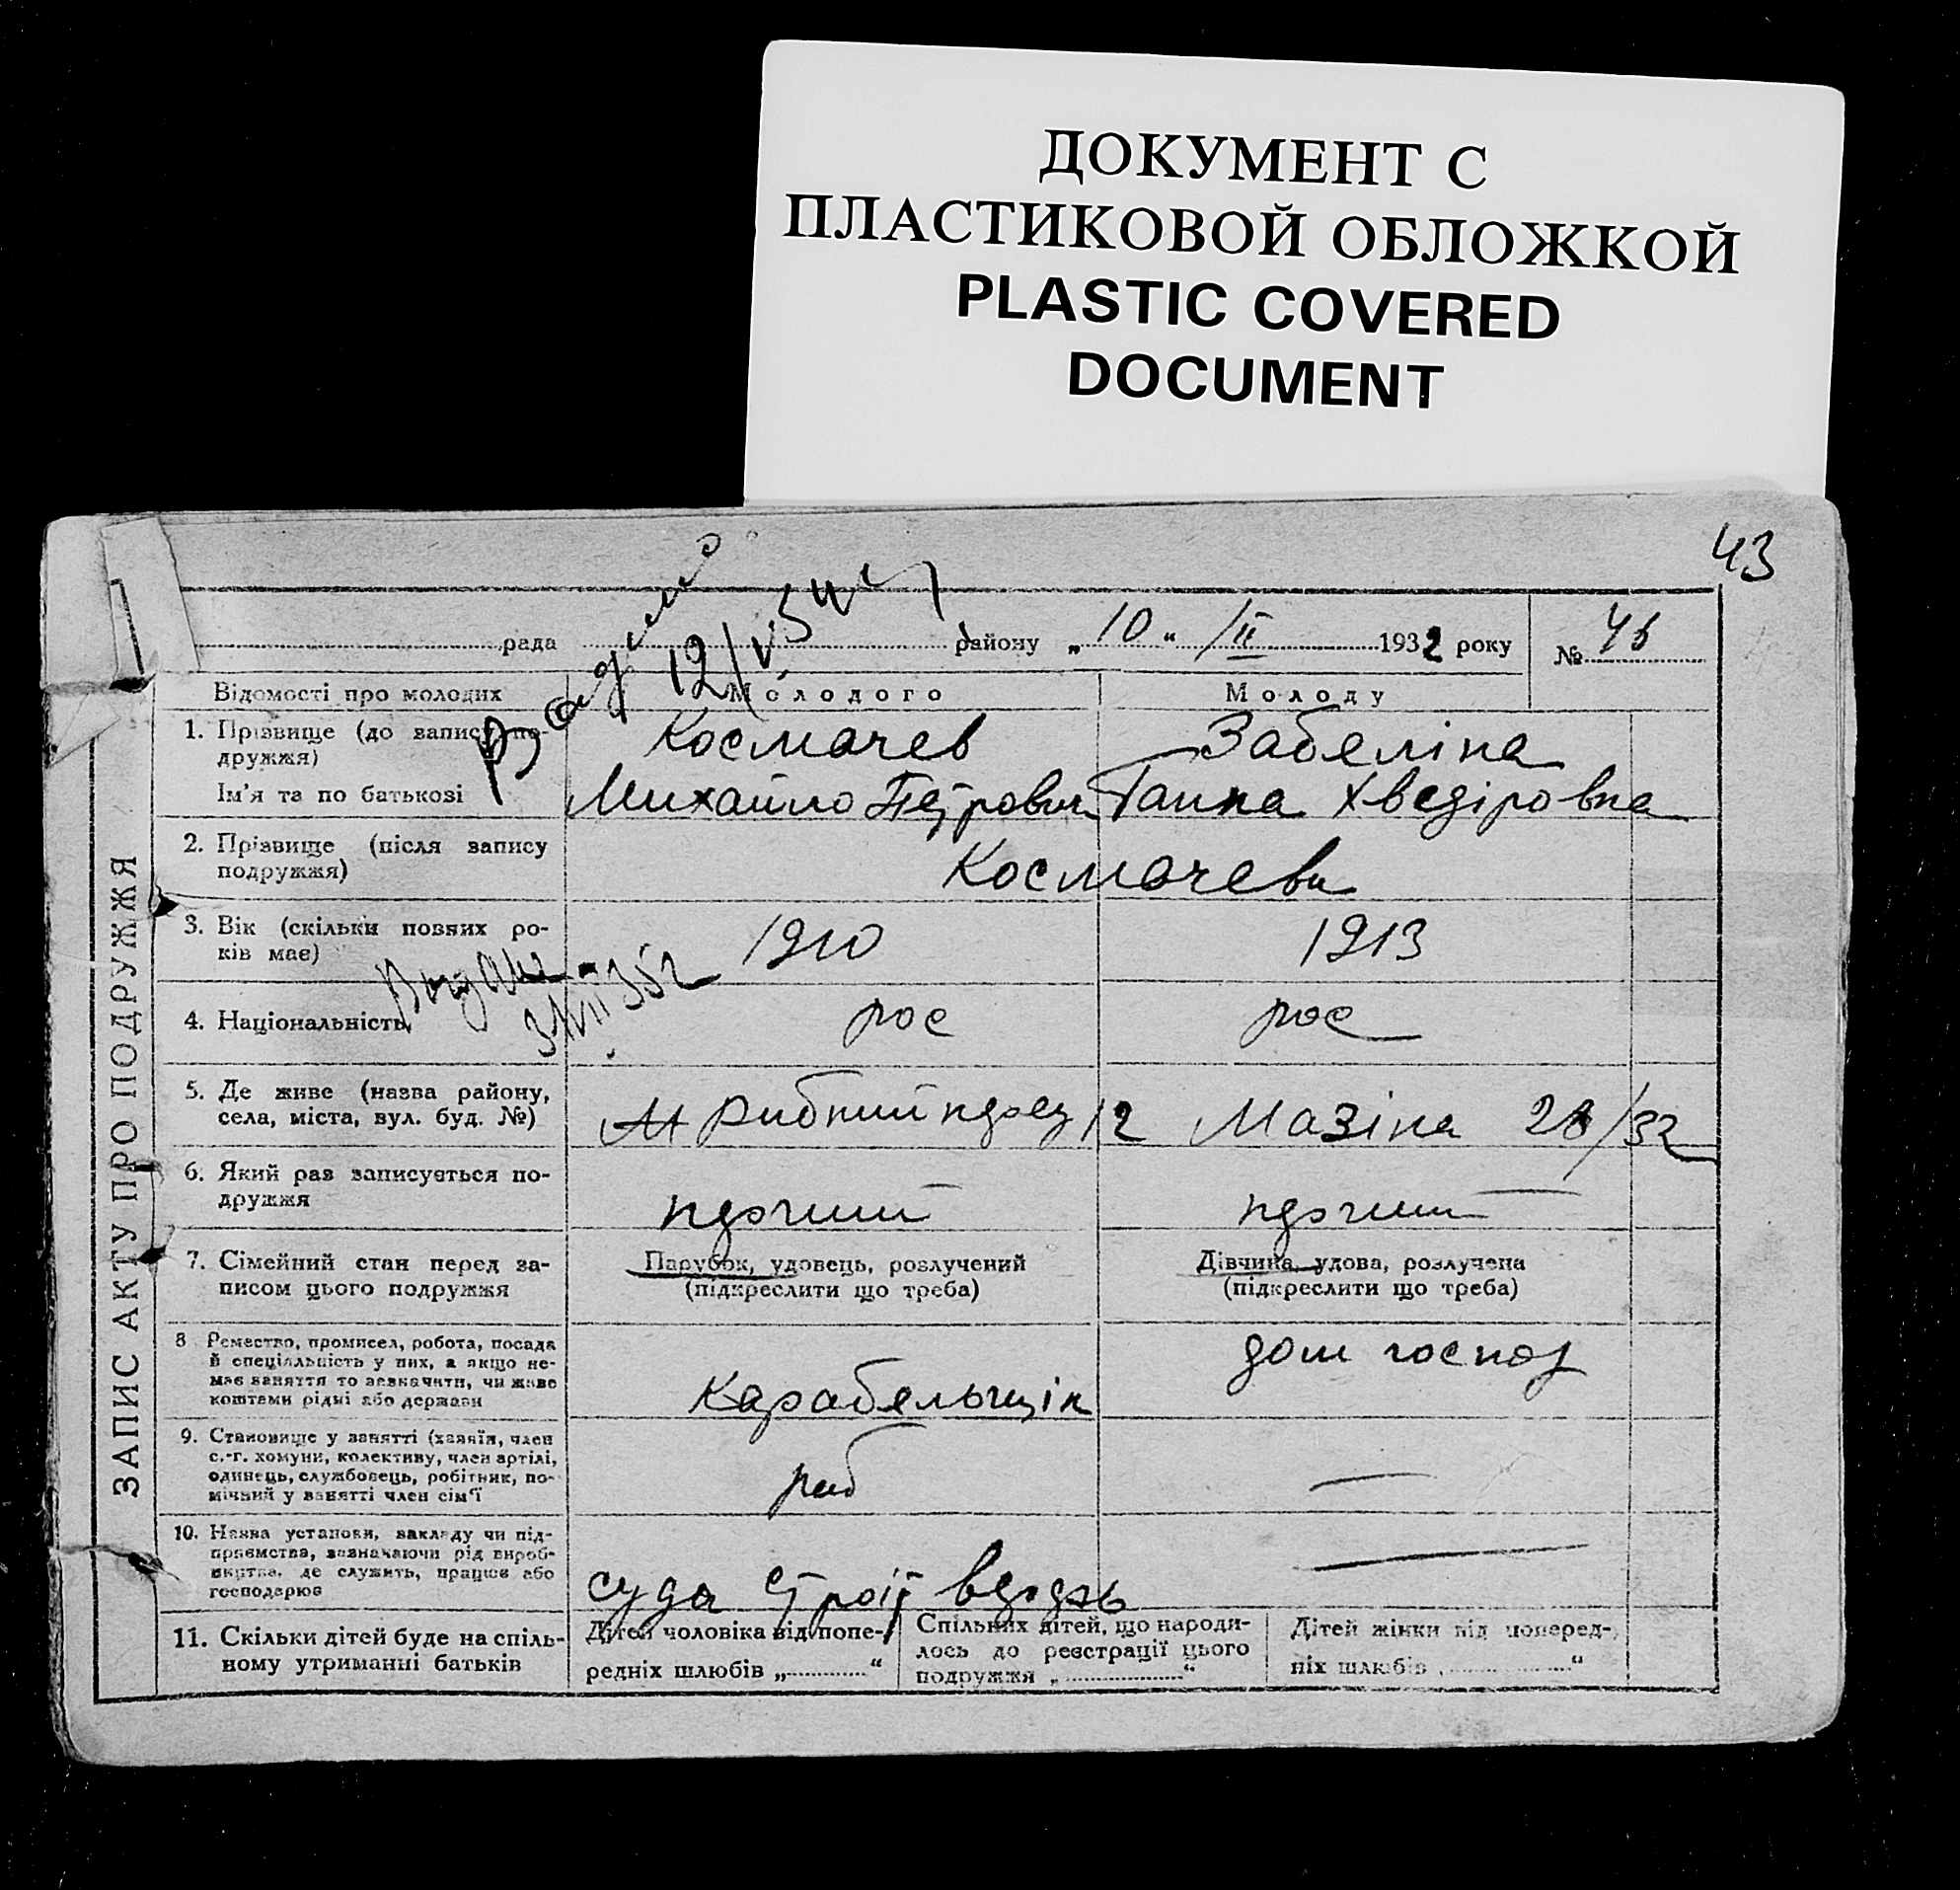 ДОКУМЕНТ С
ПЛАСТИКОВОЙ ОБЛОЖКОЙ
PLASTIC COVERED
DOCUMENT
43
рада району „10“ /II 1932 року №
12/V
ЗАПИС АКТУ ПРО ПОДРУЖЖЯ
Відомості про молодих Молодого Молоду
1. Прізвище (до запису по-
дружжя) Космачев Забеліна
Ім'я та по батькові Михайло Петрович Ганна Хведіровна
2. Прізвище (після запису
подружжя) Космачеви
3. Вік (скільки повних ро-
ків має) 1910 1913
4. Національність рос рос
5. Де живе (назва району,
села, міста, вул. буд. №) Рибний 12 Мазіна 28/32
6. Який раз записується по-
дружжя
7. Сімейний стан перед за-
писом цього подружжя
Парубок, удовець, розлучений
(підкреслити що треба)
Дівчина, удова, розлучена
(підкреслити що треба)
8 Ремество, промисел, робота, посада
й спеціяльність у них, а якщо не-
має заняття то зазначити, чи живе
коштами рідні або держави
Карабельщік дом господ
9. Становище у занятті (хазяїн, член
с.-г. комуни, колективу, член артілі,
одинець, службовець, робітник, по-
мічний у занятті член сім'ї
раб —
10. Назва установи, закладу чи під-
приємства, зазначаючи рід вироб-
ництва, де служить, працює або
господарює
суда строїт —
11. Скільки дітей буде на спіль-
ному утриманні батьків
Дітей чоловіка від попе-
редніх шлюбів „ “
Спільних дітей, що народи-
лось до реєстрації цього
подружжя „ “
Дітей жінки від поперед-
ніх шлюбів „ “